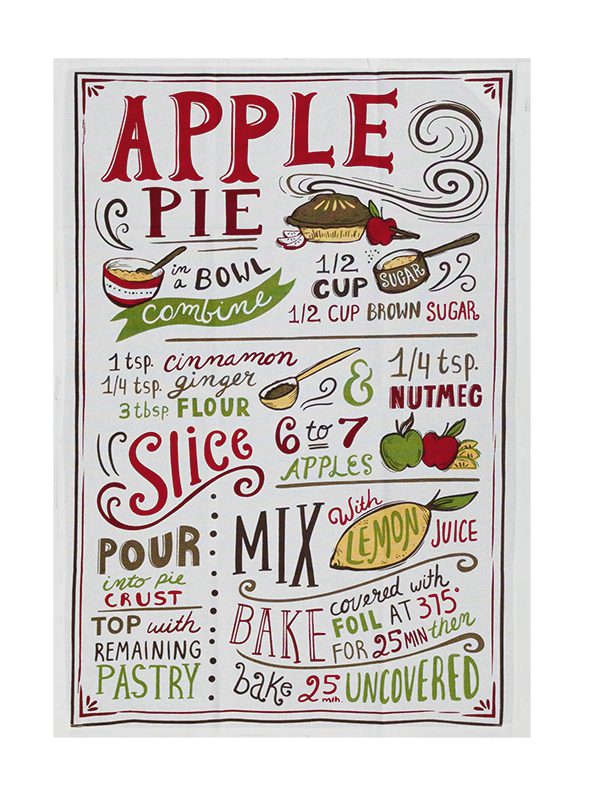 APPLE
PIE
in a BOWL
combine
1/2
CUP SUGAR
1/2 CUP BROWN SUGAR
1 tsp. cinnamon
1/4 tsp. ginger
3 tbsp FLOUR
&
1/4 tsp.
NUTMEG
Slice
6 to 7
APPLES
MIX With LEMON JUICE
POUR
into pie
CRUST
TOP with
REMAINING
PASTRY
BAKE covered with
FOIL AT 375°
FOR 25 MIN then
bake 25 min. UNCOVERED